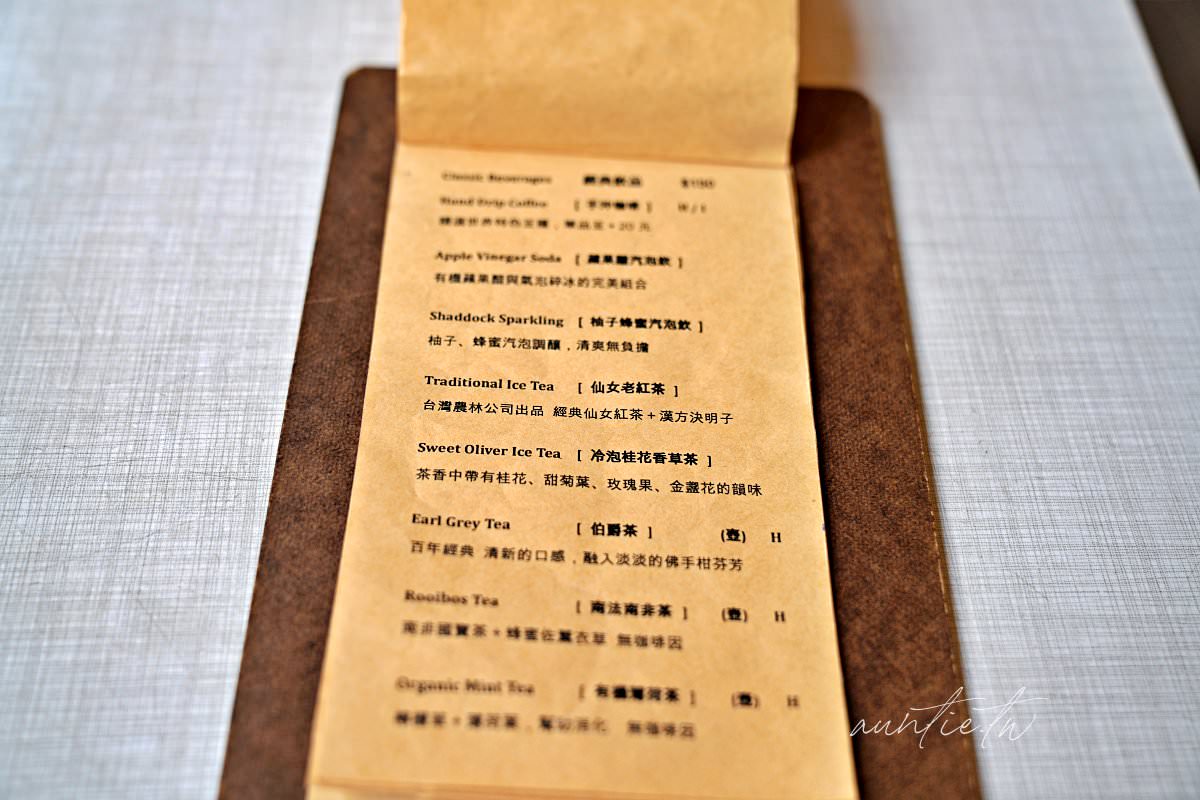 Classic Beverages 經典飲品 $150
Hand Drip Coffee [ 手沖咖啡 ] H / I
Apple Vinegar Soda [ 蘋果醋汽泡飲 ]
有機蘋果醋與氣泡碎冰的完美組合
Shaddock Sparkling [ 柚子蜂蜜汽泡飲 ]
柚子、蜂蜜汽泡調釀，清爽無負擔
Traditional Ice Tea [ 仙女老紅茶 ]
台灣農林公司出品 經典仙女紅茶+漢方決明子
Sweet Oliver Ice Tea [ 冷泡桂花香草茶 ]
茶香中帶有桂花、甜菊葉、玫瑰果、金盞花的韻味
Earl Grey Tea [ 伯爵茶 ] (壺) H
百年經典 清新的口感，融入淡淡的佛手柑芬芳
Rooibos Tea [ 南法南非茶 ] (壺) H
南非國寶茶+蜂蜜佐薰衣草 無咖啡因
Organic Mint Tea [ 有機薄荷茶 ] (壺) H
薄荷葉，幫助消化 無咖啡因
auntie.tw